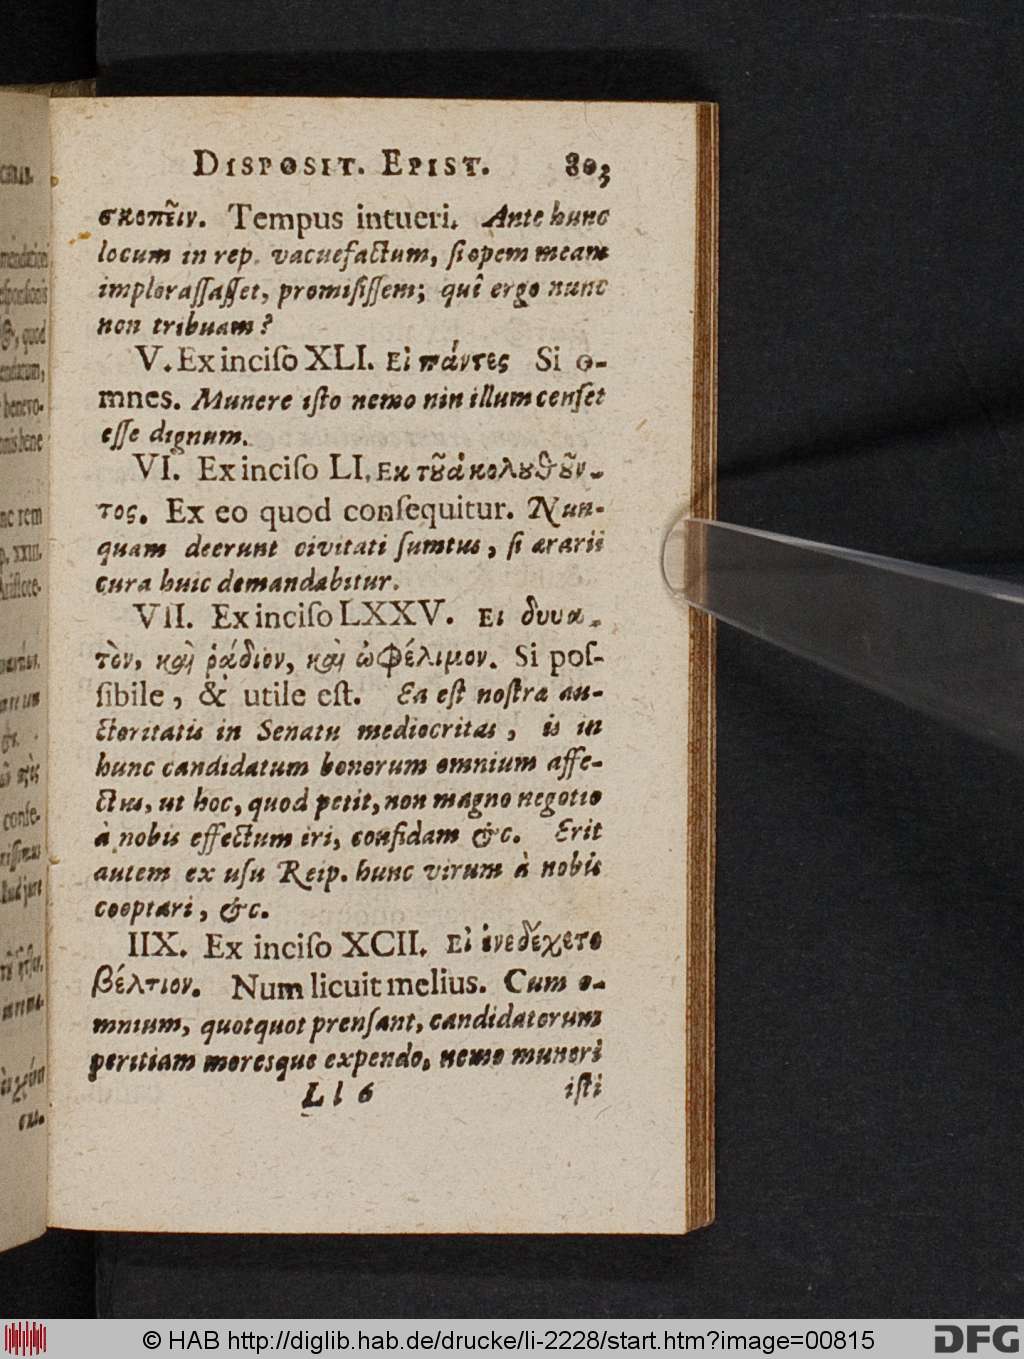 DISPOSIT. EPIST. 803
σκοπεῖν. Tempus intueri. Ante hunc
locum in rep. vacuefactum, ſi opem meam
imploraſſaſſet, promiſiſſem; quî ergo nunc
non tribuam?
V. Ex inciſo XLI. Εἰ πάντες Si o-
mnes. Munere iſto nemo nin illum cenſet
eſſe dignum.
VI. Ex inciſo LI. Εκ τȣ̃ ἀκολȣθȣ̃ν-
τος. Ex eo quod conſequitur. Nun-
quam deerunt civitati ſumtus, ſi ærarii
cura huic demandabitur.
VII. Ex inciſo LXXV. Ει δυυα-
τὸν, καὶ ῥᾴδιον, καὶ ὠφέλιμον. Si poſ-
ſibile, & utile eſt. Ea eſt noſtra au-
ctoritatis in Senatu mediocritas, is in
hunc candidatum bonorum omnium affe-
ctus, ut hoc, quod petit, non magno negotio
à nobis effectum iri, confidam &c. Erit
autem ex uſu Reip. hunc virum à nobis
cooptari, &c.
IIX. Ex inciſo XCII. Εἰ ἐνεδέχετο
βέλτιον. Num licuit melius. Cum o-
mnium, quotquot prenſant, candidatorum
peritiam moresque expendo, nemo muneri
Ll 6 iſti
© HAB http://diglib.hab.de/drucke/li-2228/start.htm?image=00815
DFG